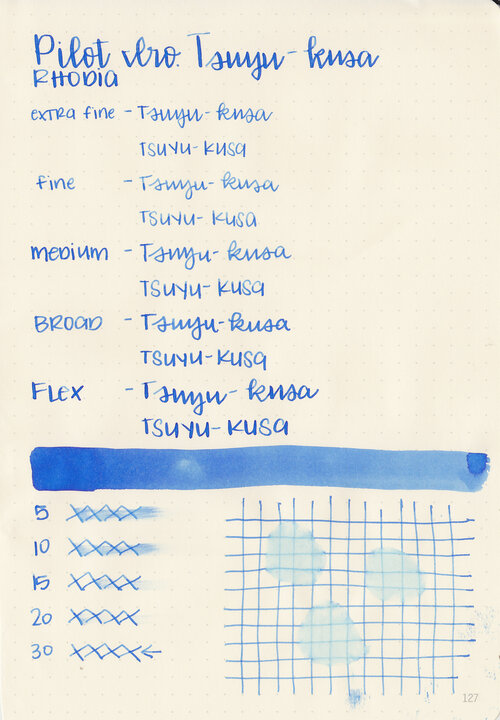 Pilot Iro. Tsuyu-kusa
RHODIA
extra fine - Tsuyu-kusa
Tsuyu-Kusa
fine - Tsuyu-kusa
Tsuyu-Kusa
medium - Tsuyu-kusa
Tsuyu-Kusa
BROAD - Tsuyu-kusa
Tsuyu-Kusa
FLEX - Tsuyu-kusa
Tsuyu-Kusa
5 XXXX
10 XXXX
15 XXXX
20 XXXX
30 XXXX←
127